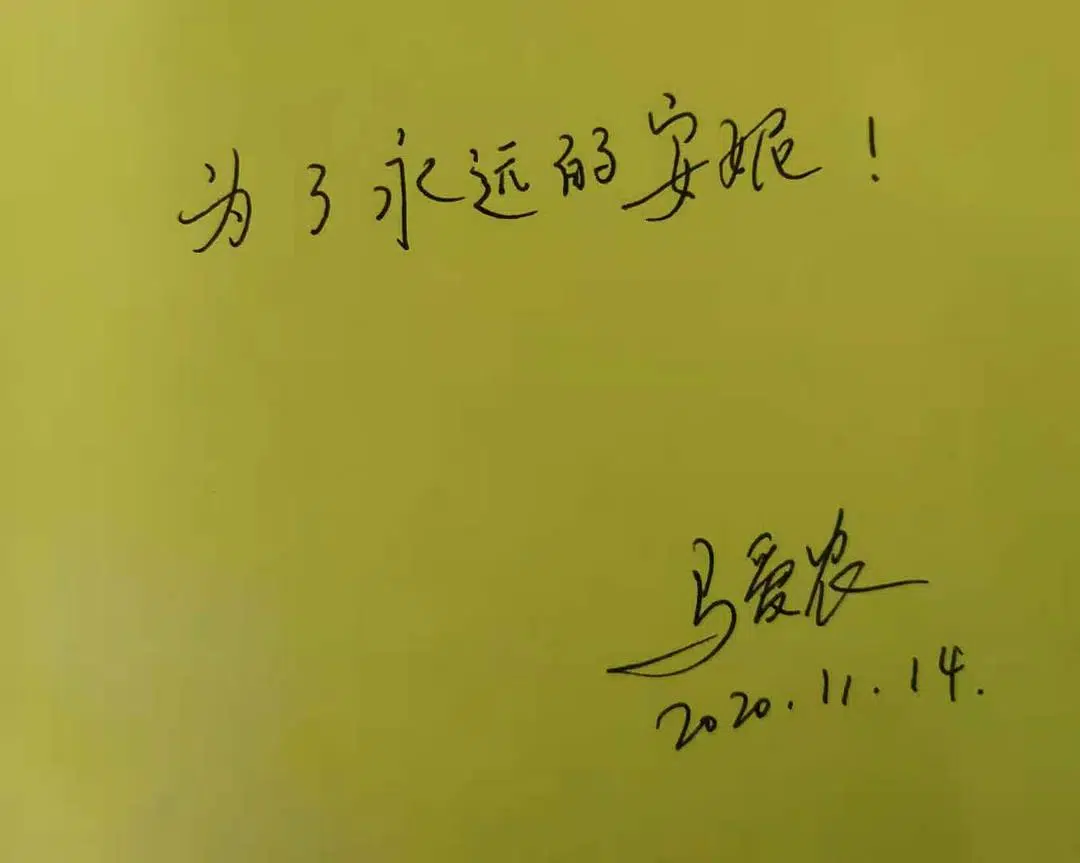 为了永远的安妮！
马爱农
2020.11.14.